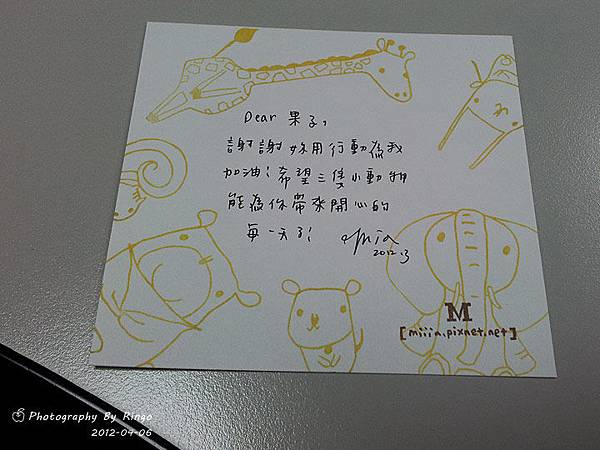 Dear 果子,
謝謝妳用行動為我
加油!希望三隻小動物
能為你帶來開心的
每一天了!
Mia
2012.3
M
[miiia.pixnet.net]
Photography By Ringo
2012-04-06